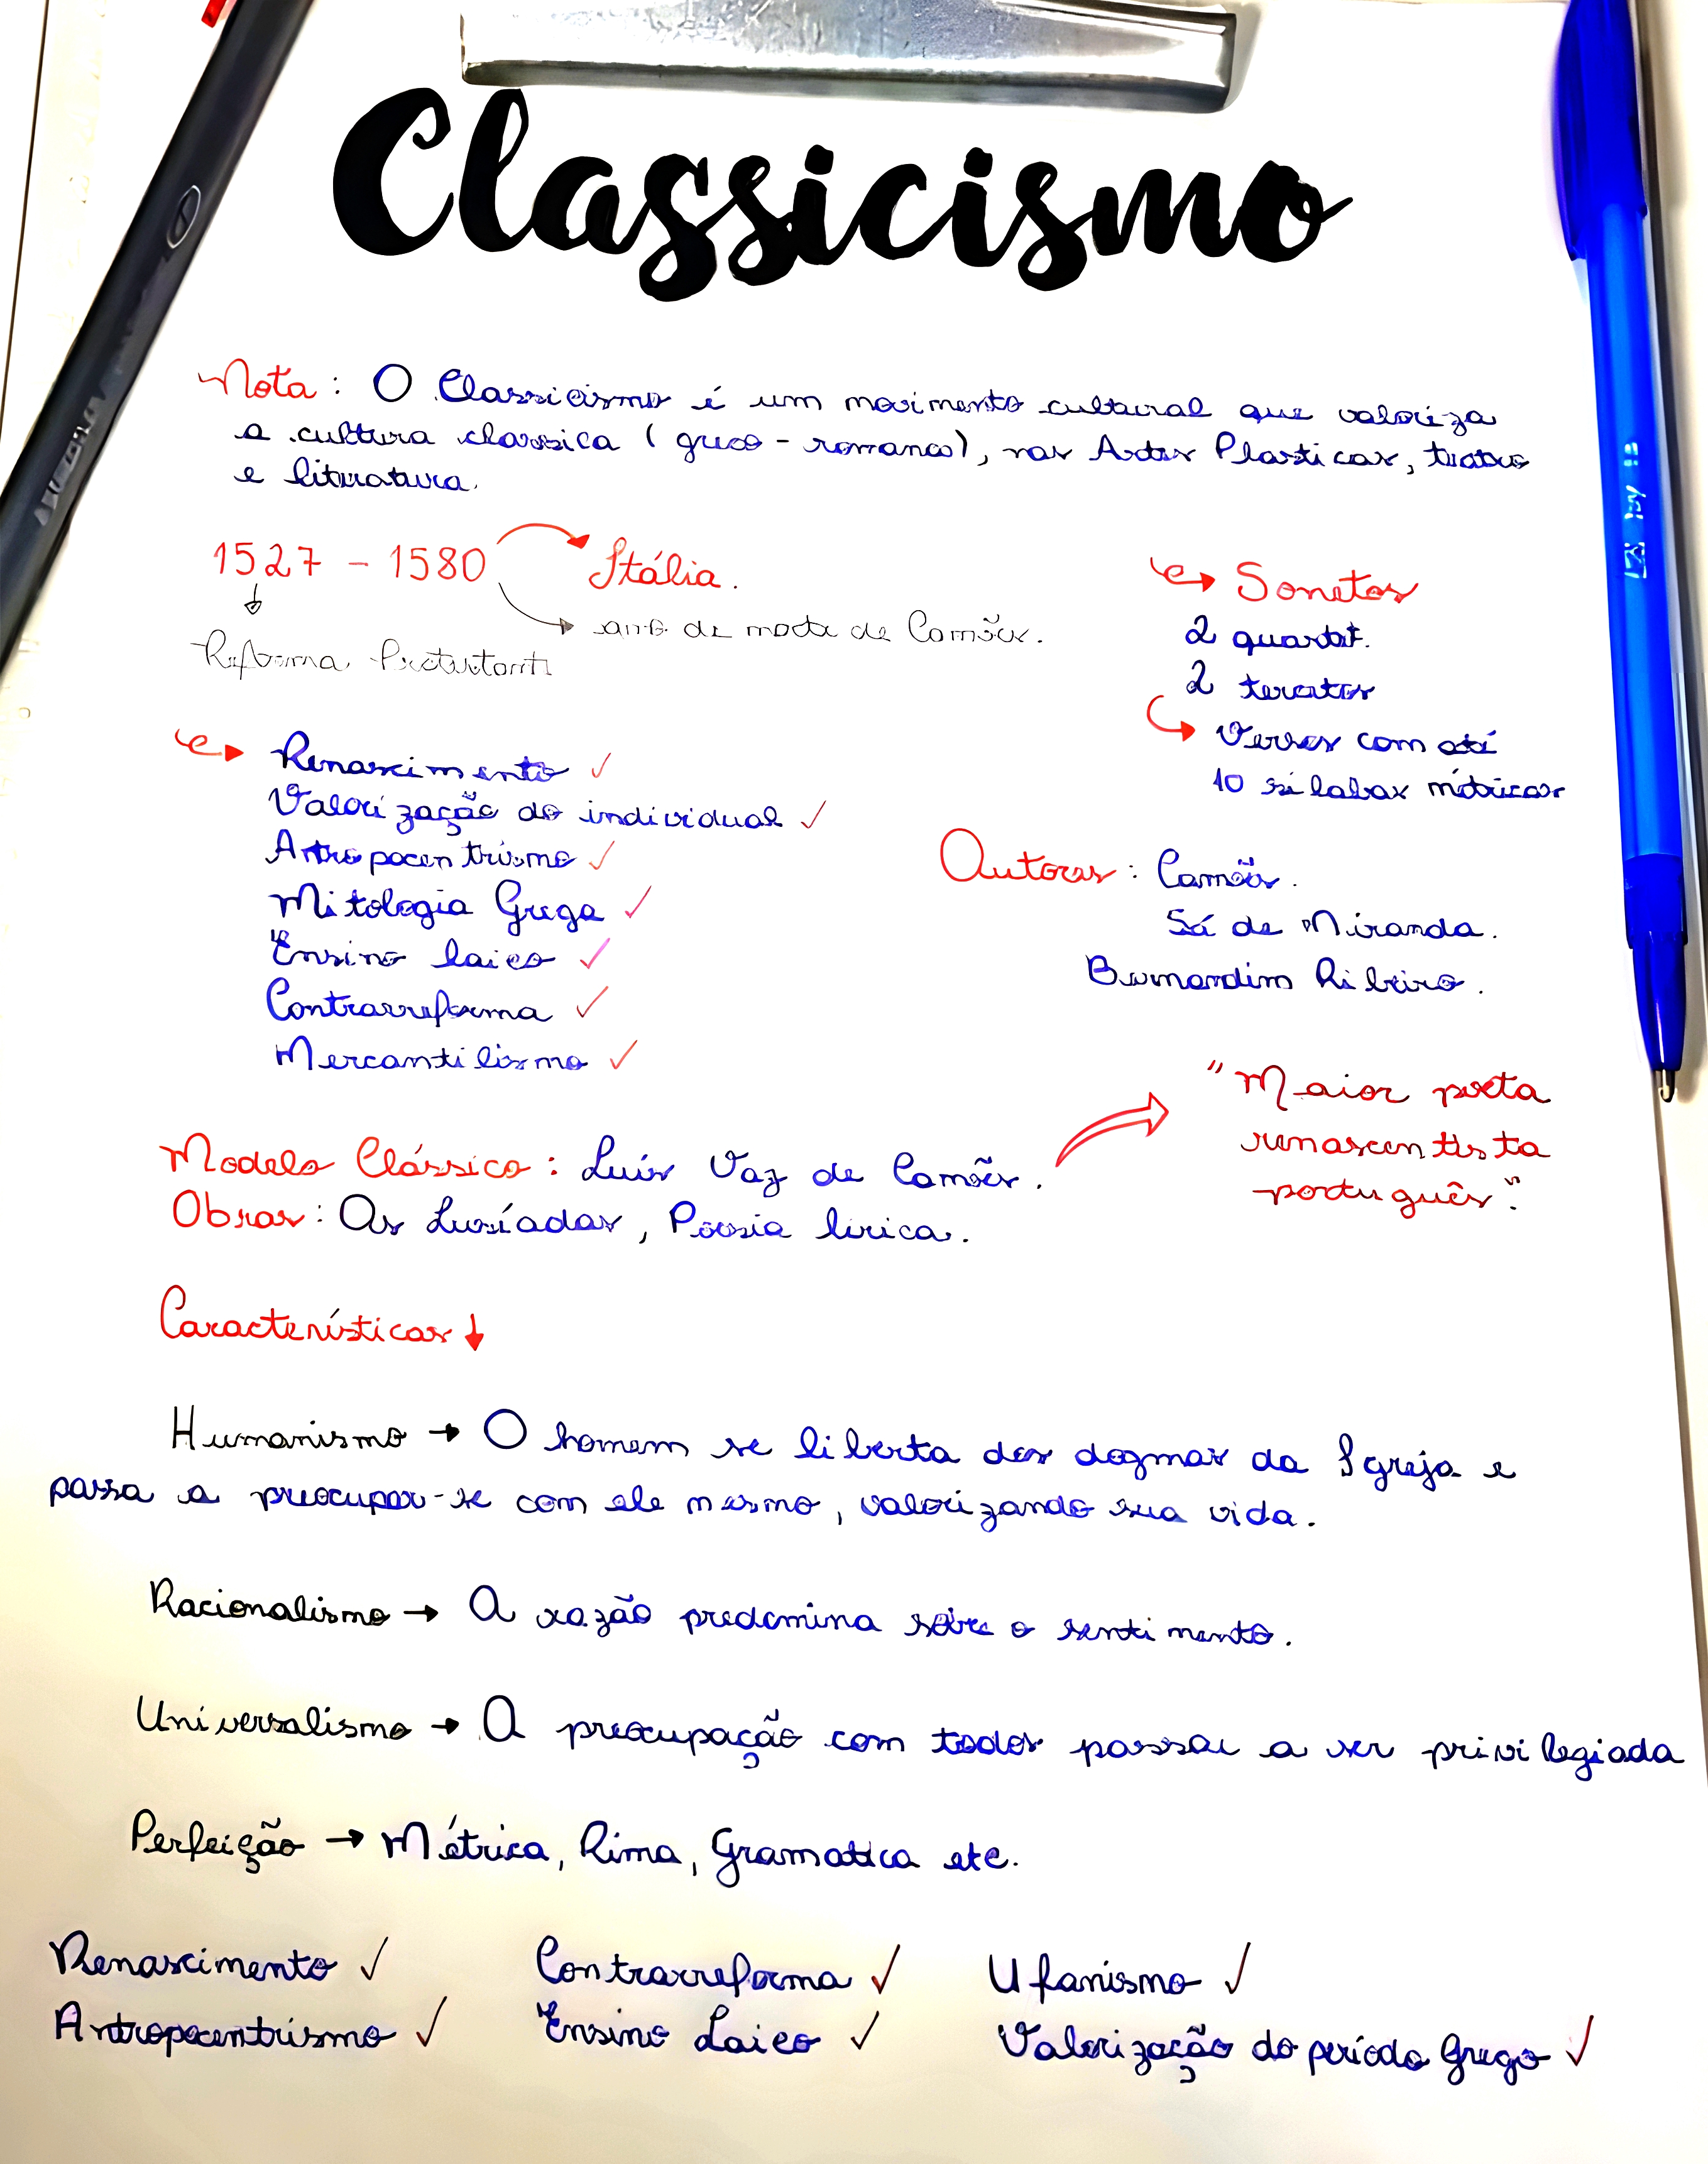 Classicismo
Nota: O Classicismo é um movimento cultural que valoriza
a cultura classica (greco-romana), nas Artes Plasticas, teatro
e literatura.
1527 - 1580
Itália.
ano de morte de Camões.
Reforma Protestante
Sonetos
2 quartet.
2 tercetos
Versos com até
10 sílabas métricas
Renascimento ✓
Valorização do individual ✓
Antropocentrismo ✓
Mitologia Grega ✓
Ensino laico ✓
Contrarreforma ✓
Mercantilismo ✓
Autores: Camões.
Sá de Miranda.
Bernardim Ribeiro.
Modelo Clássico: Luís Vaz de Camões.
Obras: Os Lusíadas, Poesia lírica.
"Maior poeta
renascentista
português".
Características ↓
Humanismo → O homem se liberta dos dogmas da Igreja e
passa a preocupar-se com ele mesmo, valorizando sua vida.
Racionalismo → A razão predomina sobre o sentimento.
Universalismo → A preocupação com todos passou a ser privilegiada
Perfeição → Métrica, Rima, Gramatica etc.
Renascimento ✓ Contrarreforma ✓ Ufanismo ✓
Antropocentrismo ✓ Ensino Laico ✓ Valorização do período Grego ✓